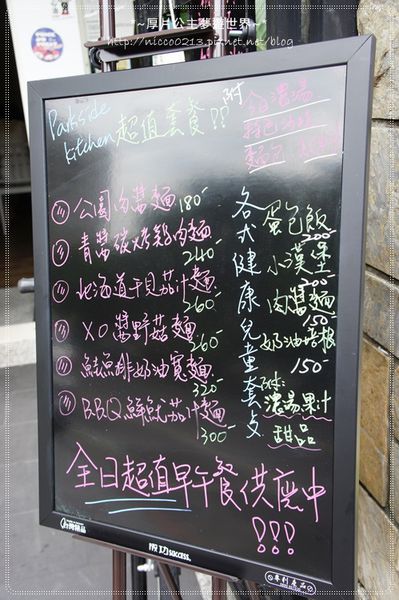 ~厚片公主夢遊世界~
http://nicco0213.pixnet.net/blog
Parkside
Kitchen 超值套餐!!
附
今日濃湯
特色沙拉
麵包
公園肉醬麵 180
青醬碳烤雞肉麵
240
北海道干貝茄汁麵
260
XO醬野菇麵
260
鯰魚排奶油寬麵
320
B.B.Q鮮魷茄汁麵
300
各式健康兒童套餐
蛋包飯
200
小漢堡
200
肉醬麵
150
奶油培根
150
附:
濃湯果汁
甜品
全日超值早午餐供應中
!!!
成功success.
專利產品